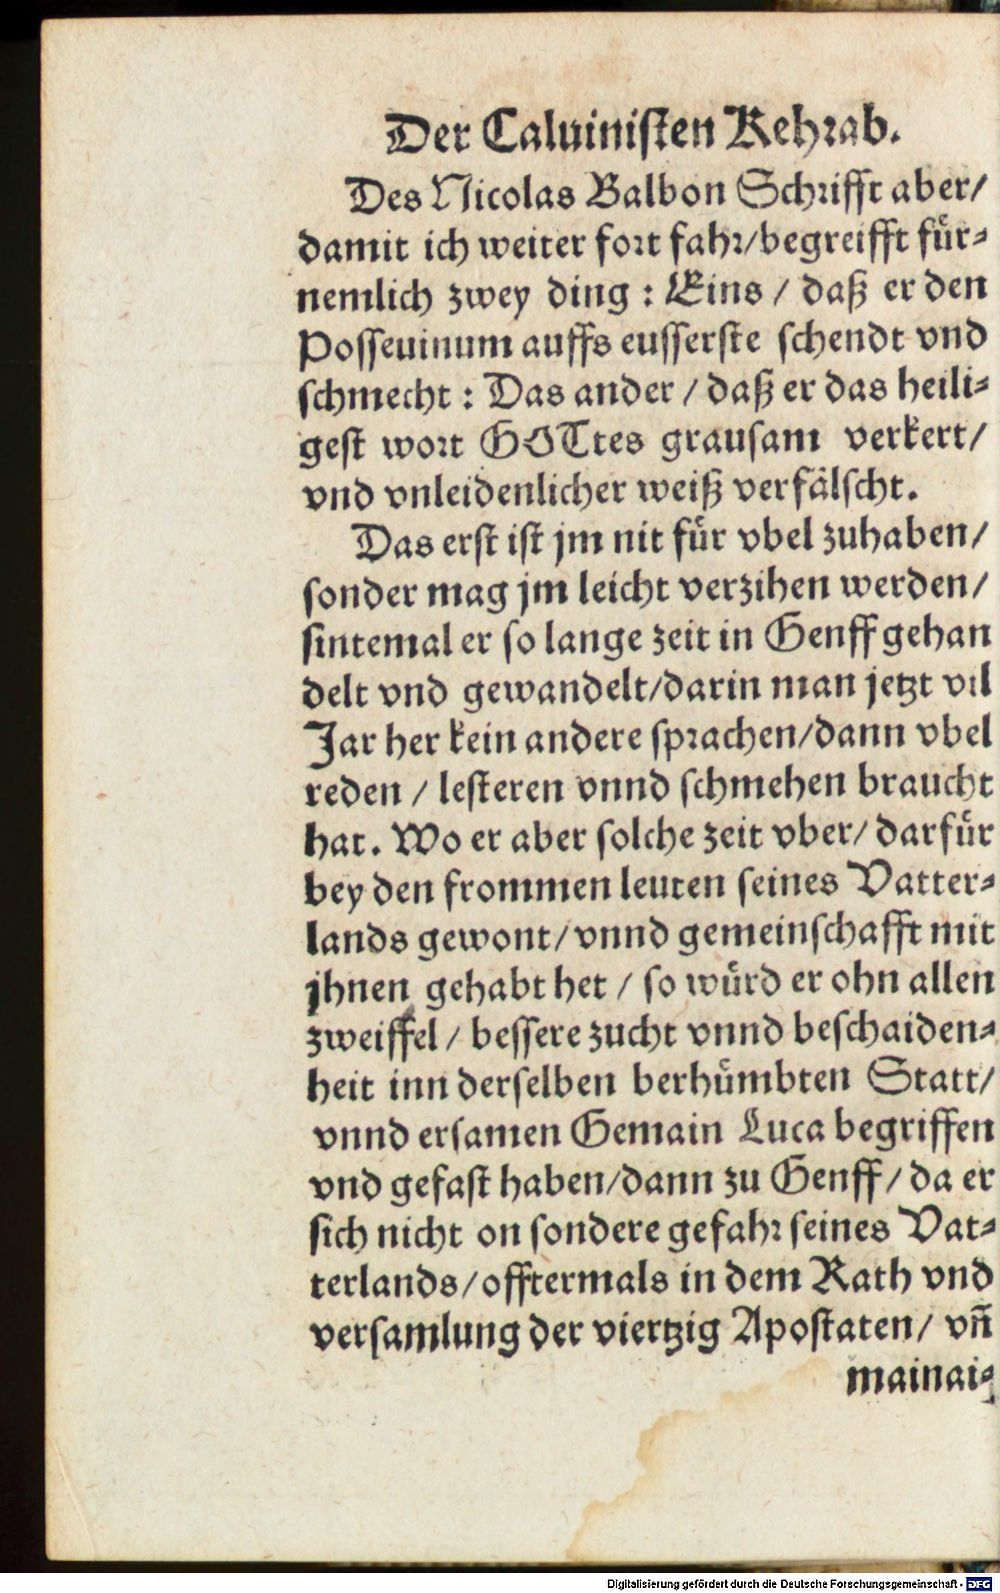 Der Caluinisten Kehrab.
Des Nicolas Balbon Schrifft aber/
damit ich weiter fort fahr/begreifft fuͤr-
nemlich zwey ding : Eins / daß er den
Posseuinum auffs eusserste schendt vnd
schmecht : Das ander / daß er das heili-
gest wort GOTtes grausam verkert/
vnd vnleidenlicher weiß verfaͤlscht.
Das erst ist jm nit fuͤr vbel zuhaben/
sonder mag jm leicht verzihen werden/
sintemal er so lange zeit in Genff gehan
delt vnd gewandelt/darin man jetzt vil
Jar her kein andere sprachen/dann vbel
reden / lesteren vnnd schmehen braucht
hat. Wo er aber solche zeit vber/ darfuͤr
bey den frommen leuten seines Vatter-
lands gewont/vnnd gemeinschafft mit
jhnen gehabt het / so wuͤrd er ohn allen
zweiffel / bessere zucht vnnd beschaiden-
heit inn derselben berhuͤmbten Statt/
vnnd ersamen Gemain Luca begriffen
vnd gefast haben/dann zu Genff/ da er
sich nicht on sondere gefahr seines Vat-
terlands/offtermals in dem Rath vnd
versamlung der viertzig Apostaten/ vn̄
mainai-
Digitalisierung gefördert durch die Deutsche Forschungsgemeinschaft - DFG